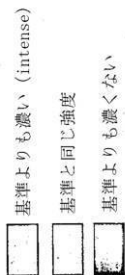 基準よりも濃い (intense)
基準と同じ強度
基準よりも濃くない